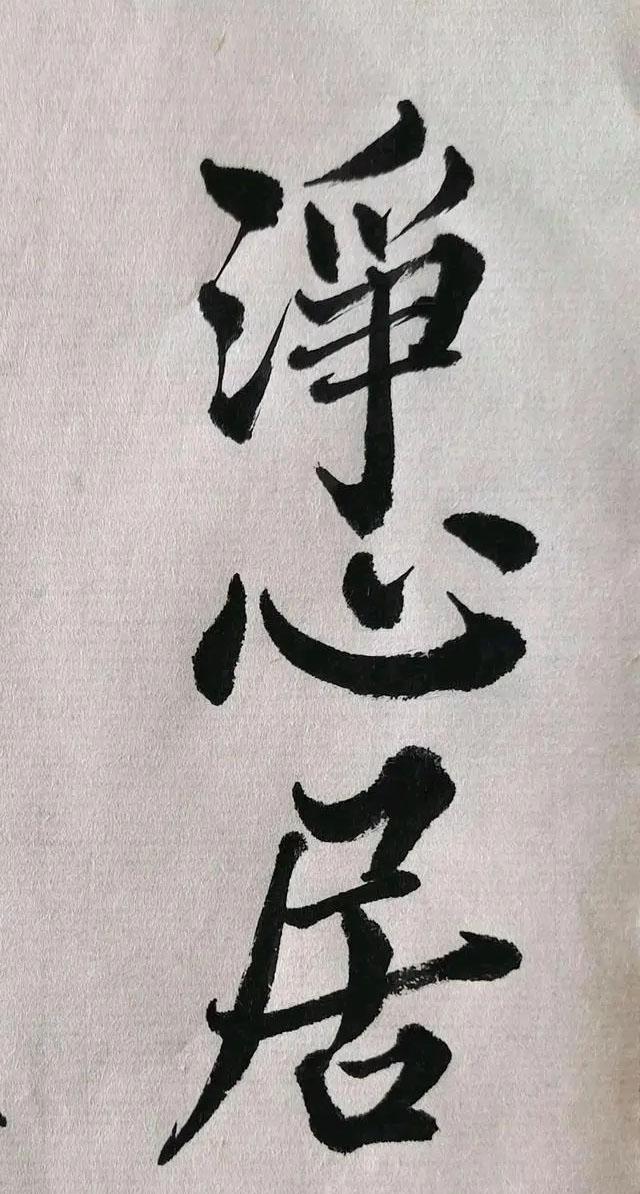 淨心居